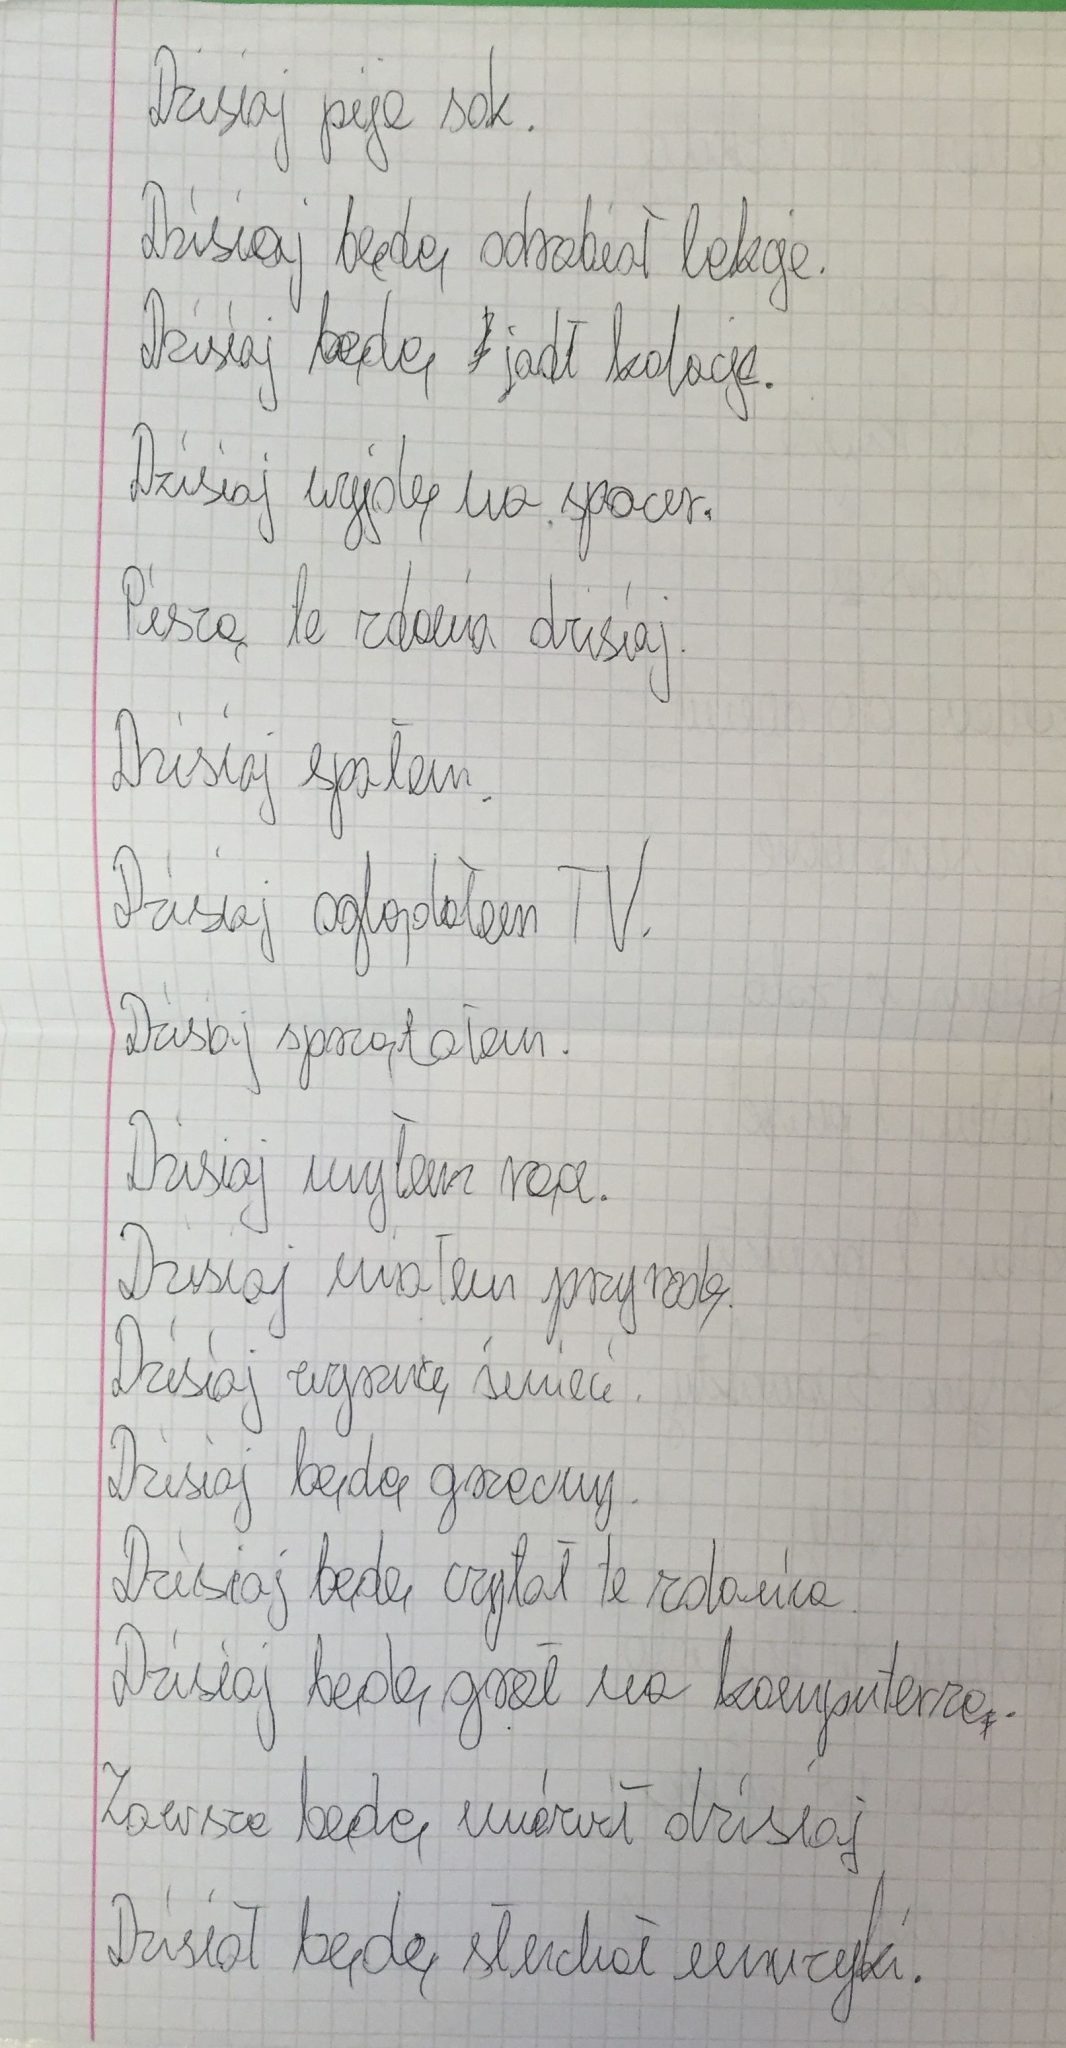 Dzisiaj piję sok.
Dzisiaj będę odrabiał lekcje.
Dzisiaj będę jadł kolację.
Dzisiaj wyjdę na spacer.
Piszę te zdania dzisiaj.
Dzisiaj spałem.
Dzisiaj oglądałem TV.
Dzisiaj sprzątałem.
Dzisiaj myłem ręce.
Dzisiaj miałem przyrodę.
Dzisiaj wyrzucę śmieci.
Dzisiaj będę grzeczny.
Dzisiaj będę czytał te zdania.
Dzisiaj będę grał na komputerze.
Zawsze będę mówił dzisiaj
Dzisiał będę słuchał muzyki.